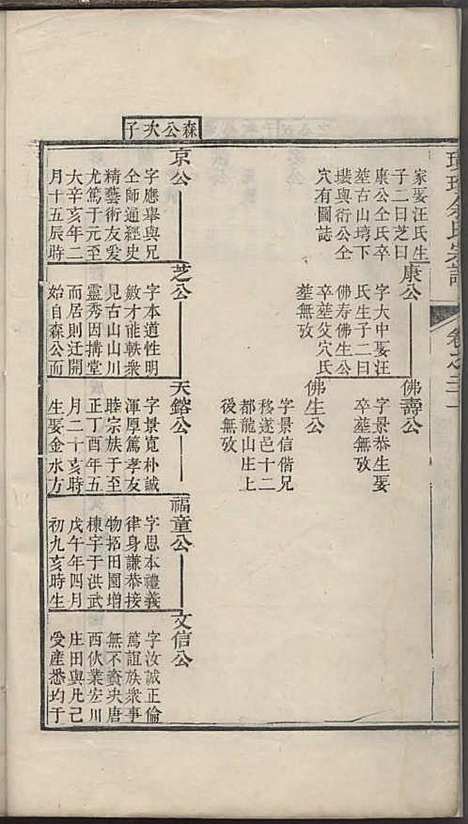 氏宗譜
家娶汪氏生
子二曰芝曰
康公仝氏卒
塟古山塆下
與衍公仝
穴有圖誌
康公
字大中娶汪
氏生子二曰
佛寿佛生公
卒塟攷穴氏
塟無攷
佛壽公
字景恭生娶
卒塟無攷
佛生公
字景信偕兄
移遂邑十二
都龍山庄上
後無攷
森公次子
京公
字應舉與兄
仝師通經史
精藝術友爰
尤篤于元至
大辛亥年二
月十五辰時
芝公
字本道性明
敏才能軼衆
見古山山川
靈秀因搆堂
而居則迁開
始自森公而
天鎔公
字景寬朴誠
渾厚篤孝友
睦宗族于至
正丁酉年五
月二十亥時
生娶金水方
福童公
字思本禮義
律身謙恭接
物拓田園增
棟宇于洪武
戊午年四月
初九亥時生
文信公
字汝誠正倫
篤誼族衆事
無不賫央唐
西伙業宏川
庄田與凢己
受產悉均于